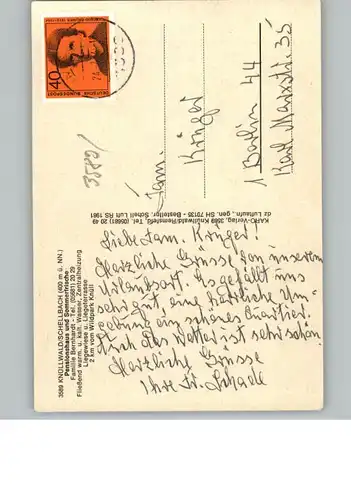 3589 KNÜLLWALD/SCHELLBACH (400 m ü. NN.)
Pensionshaus und Sommerfrische
Familie Bernhardt - Tel. (05681) 29 29
Fließend warm. u. kalt. Wasser, Zentralheizung
Liegewiese u. Liegeterrasse
2 km vom Wildpark Knüll
3589/
KARO-Verlag, 3589 Knüllwald/Remsfeld, Tel. (05681) 20 49
dz Luftaufn., gen. SH 70/36 - Bestellnr. Schell Luft RS 1981
40
DEUTSCHE BUNDESPOST
Fam.
Krüger
1 Berlin 44
Karl Marxstr. 35
Liebe Fam. Krüger!
Herzliche Grüsse von unserem
Urlaubsort. Es gefällt uns
sehr gut, eine herrliche Um-
gebung ein schönes Quartier.
Auch das Wetter ist sehr schön.
Herzliche Grüsse
Ihre Fr. Schade